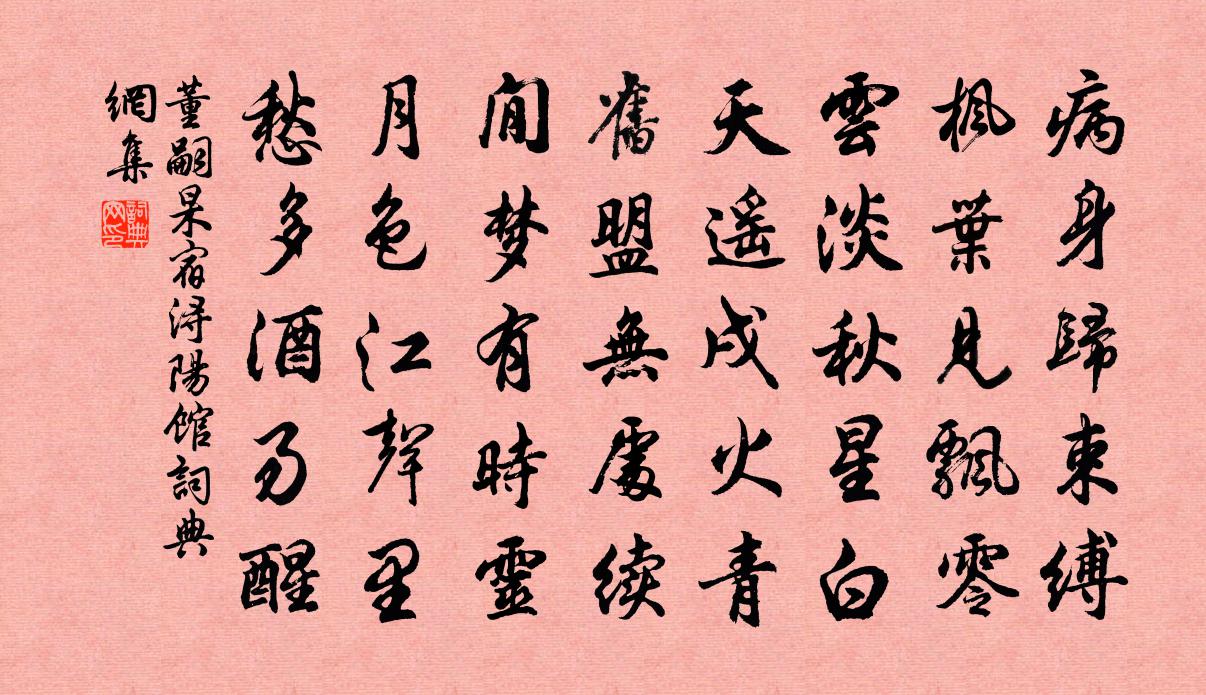 病身歸束縛
楓葉見飄零
雲淡秋星白
天遥戍火青
舊盟無處續
閒梦有時靈
月色江聲里
愁多酒易醒
董嗣杲宿浔陽馆詞典
網集
詞典網印